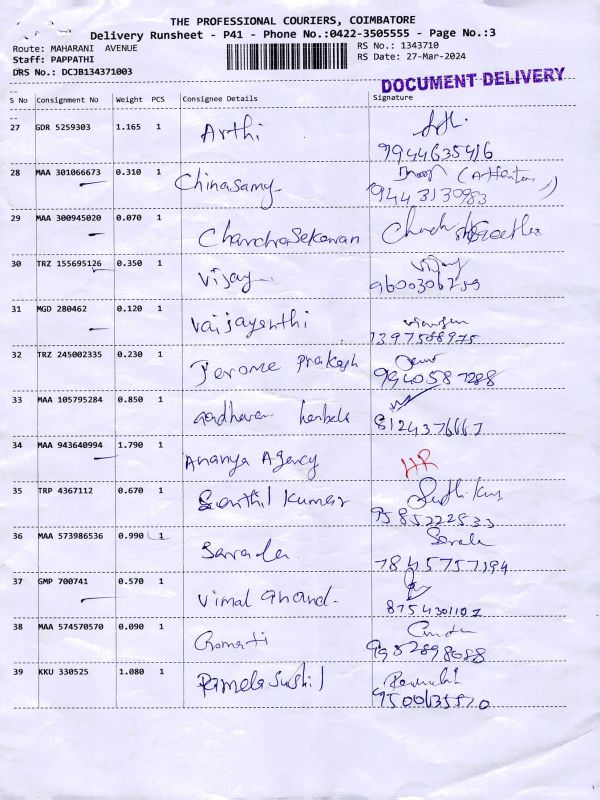 THE PROFESSIONAL COURIERS, COIMBATORE
Delivery Runsheet - P41 - Phone No.:0422-3505555 - Page No.:3
Route: MAHARANI AVENUE
RS No.: 1343710
Staff: PAPPATHI
RS Date: 27-Mar-2024
DRS No.: DCJB134371003
DOCUMENT DELIVERY
S No Consignment No Weight PCS Consignee Details Signature
27 GDR 5259303 1.165 1 Arthi
9944635416
28 MAA 301066673 0.310 1 Chinasamy
9443130983
29 MAA 300945020 0.070 1 ChandraSekaran
30 TRZ 155695126 0.350 1 Vijay Vijay
9600306259
31 MGD 280462 0.120 1 Vaijayanthi
7397588975
32 TRZ 245002335 0.230 1 Jerome Prakash
9940587288
33 MAA 105795284 0.850 1
8124376667
34 MAA 943640994 1.790 1 Ananya Agency HR
35 TRP 4367112 0.670 1 Senthil Kumar
9585222533
36 MAA 573986536 0.990 1 Sarala Sarala
7845757194
37 GMP 700741 0.570 1 Vimal Anand
8754301107
38 MAA 574570570 0.090 1 Gomati
9952898088
39 KKU 330525 1.080 1 Pamela Sushil
9500635520